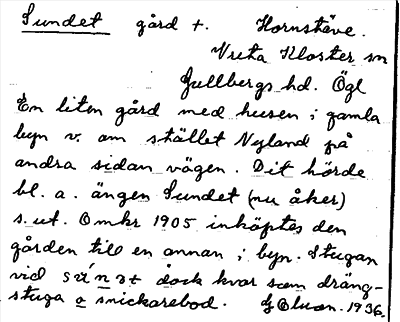 Sundet gård †. Hornstäve.
Vreta Kloster sn
Gullbergs hd. Ögl
En liten gård med husen i gamla
byn v. om stället Nyland på
andra sidan vägen. Dit hörde
bl. a. ängen Sundet (nu åker)
s. ut. Omkr 1905 inköptes den
gården till en annan i byn. Stugan
vid dock kvar som dräng-
stuga o snickarebod. 1936.